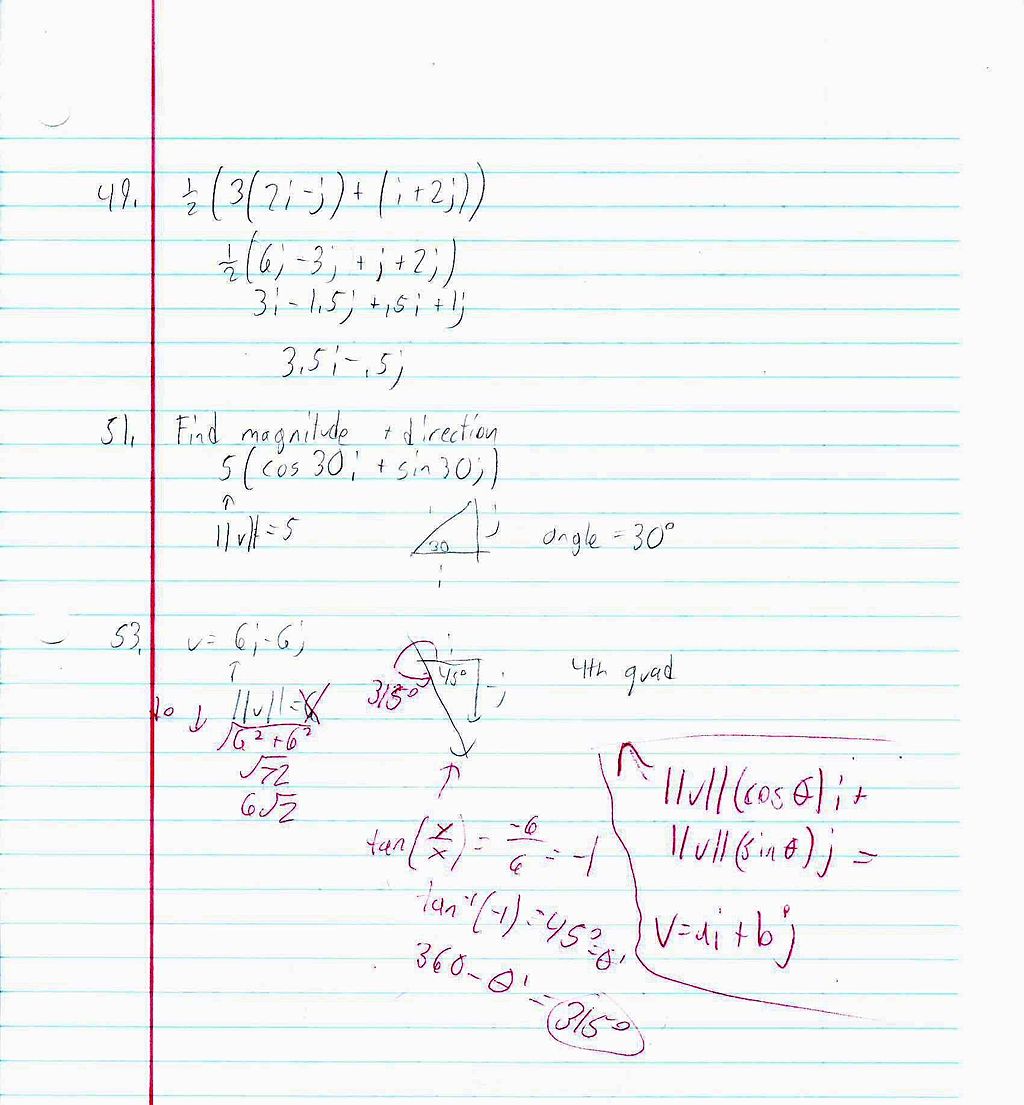 49. ½(3(2i-j)+(i+2j))
½(6i-3j+i+2j)
3i-1.5j+.5i+1j
3.5i-.5j
51. Find magnitude + direction
5(cos30i + sin30j)
↑
||v||=5
30
i
j
angle = 30°
i
53. v= 6i-6j
↑
i
45°
-j
4th quad
315°
↓ ||v||=6
√6²+6²
√72
6√2
↑
tan(y/x) = -6/6 = -1
tan⁻¹(-1)=45°=θ'
360-θ' = 315°
||v||(cosθ)i+
||v||(sinθ)j =
V=ai+bj